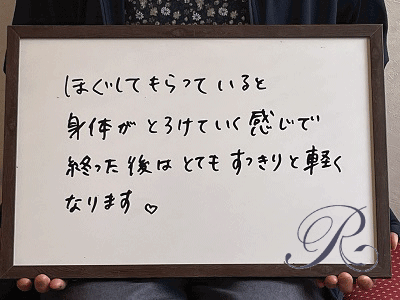 ほぐしてもらっていると
身体がとろけていく感じで
終った後はとてもすっきりと軽く
なります♡
R